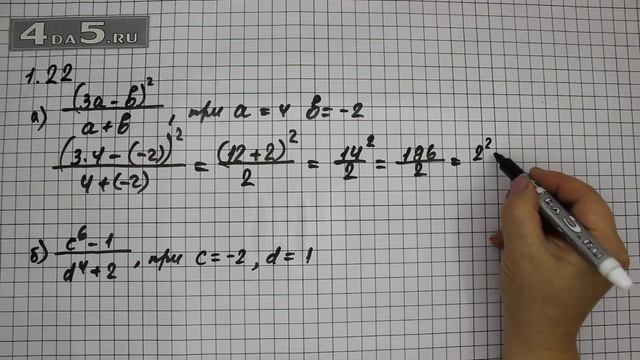 4DA5.RU
1.22
а) (3a - b)² / a + b , при a = 4 b = -2
(3·4 - (-2))² / 4 + (-2) = (12 + 2)² / 2 = 14² / 2 = 196 / 2 = 2²
б) c⁶ - 1 / d⁴ + 2 , при c = -2, d = 1
4DA5.RU